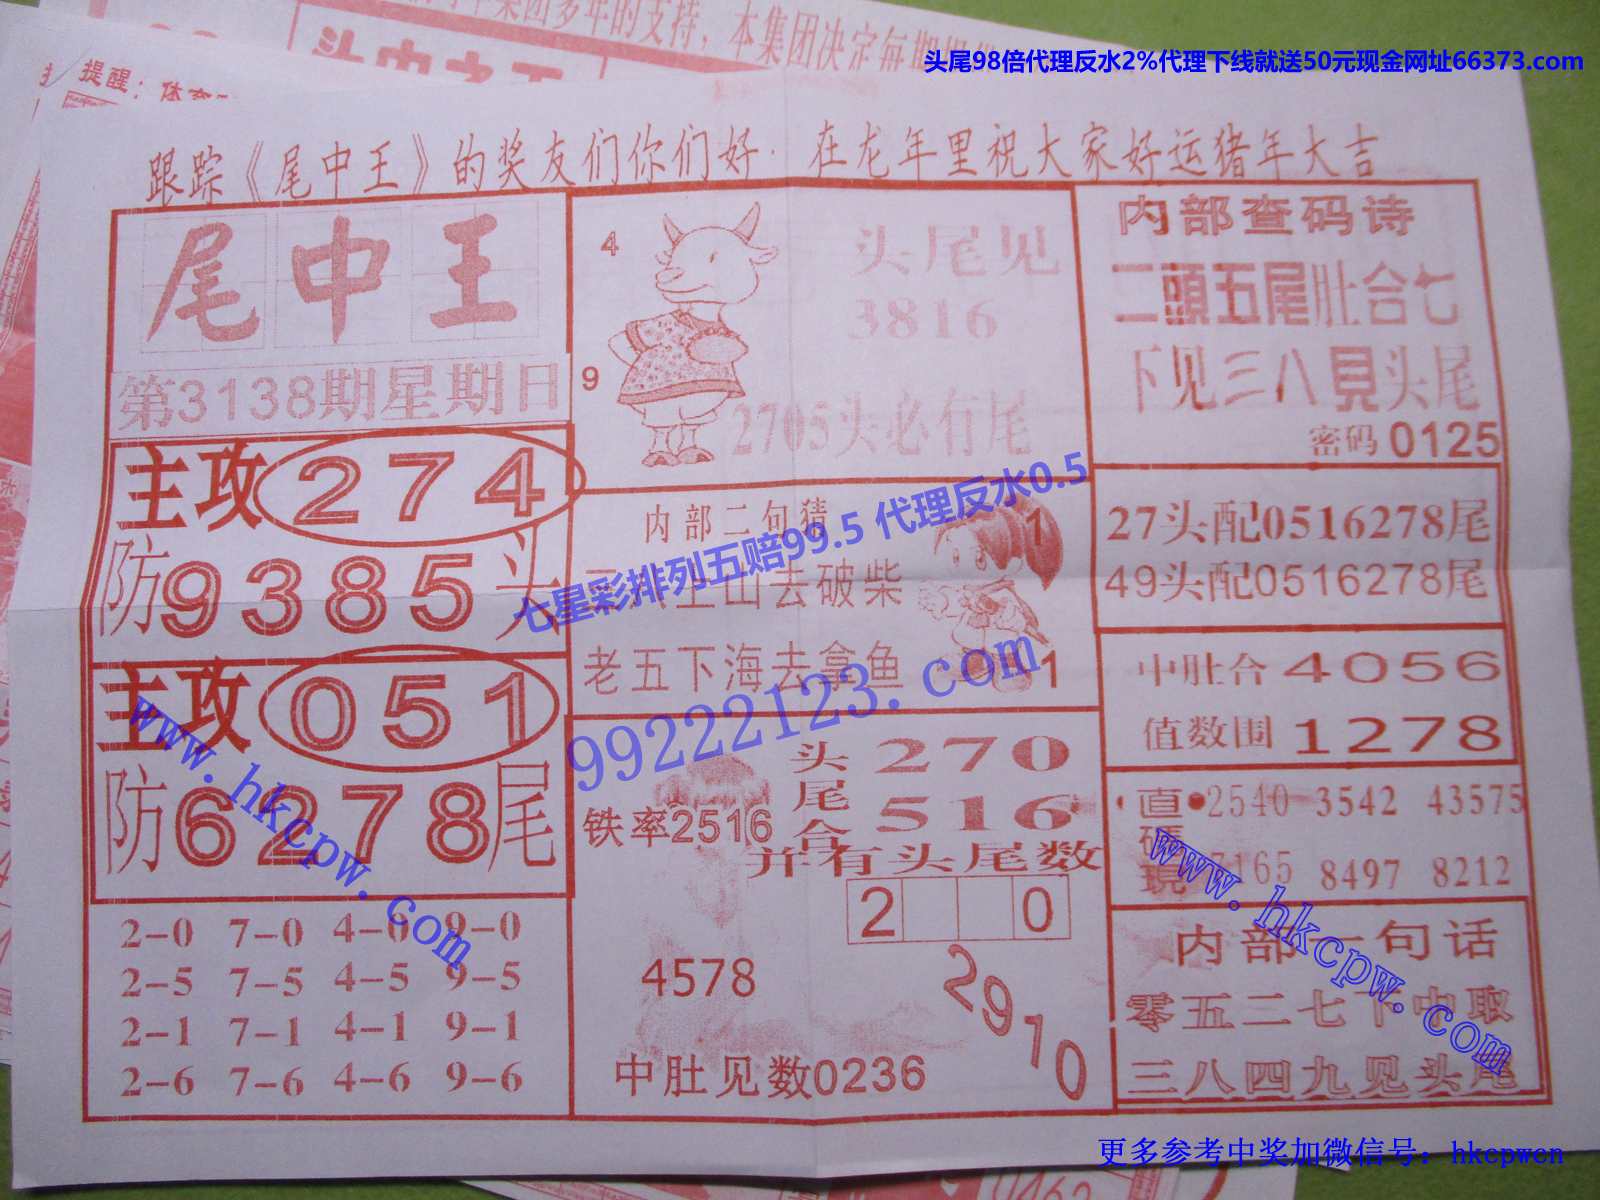 头尾98倍代理反水2%代理下线就送50元现金网址66373.com
提醒：体育
跟踪《尾中王》的奖友们你们好．在龙年里祝大家好运猪年大吉
尾中王
第3138期星期日
主攻274
防9385头
主攻051
防6278尾
2-0 7-0 4-6 9-0
2-5 7-5 4-5 9-5
2-1 7-1 4-1 9-1
2-6 7-6 4-6 9-6
4
9
头尾见
3816
2705头必有尾
内部二句猜
上山去破柴
老五下海去拿鱼
1
1
七星彩排列五赔99.5 代理反水0.5
99222123.com
头尾合
270
516
铁率2516
并有头尾数
2 0
4578
2970
中肚见数0236
内部查码诗
二頭五尾肚合七
下见三八見头尾
密码0125
27头配0516278尾
49头配0516278尾
中肚合4056
值数围1278
直碼現
2540 3542 43575
7165 8497 8212
内部一句话
零五二七下中取
三八四九见头尾
www.hkcpw.com
www.hkcpw.com
更多参考中奖加微信号：hkcpwcn